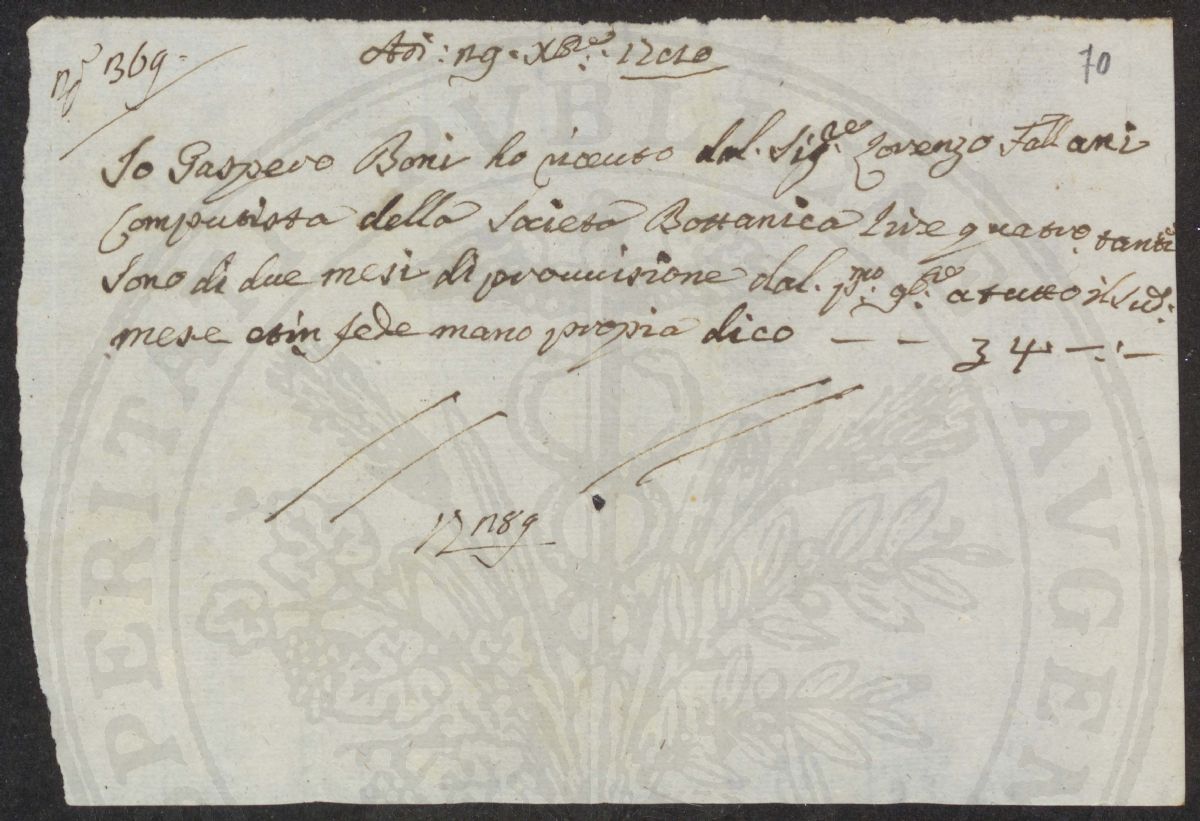 N° 369.
Adi: 29. Xbre. 17
70
Io Gaspero Boni ho riceuto dal. Sigre. Lorenzo Fallani
Computista della Societa Bottanica Lire quatro tanti
Sono di due mesi di prouuisione dal. pmo. 9bre. a tutto il Sud.
mese et in fede mano propia dico — — 4 — : —